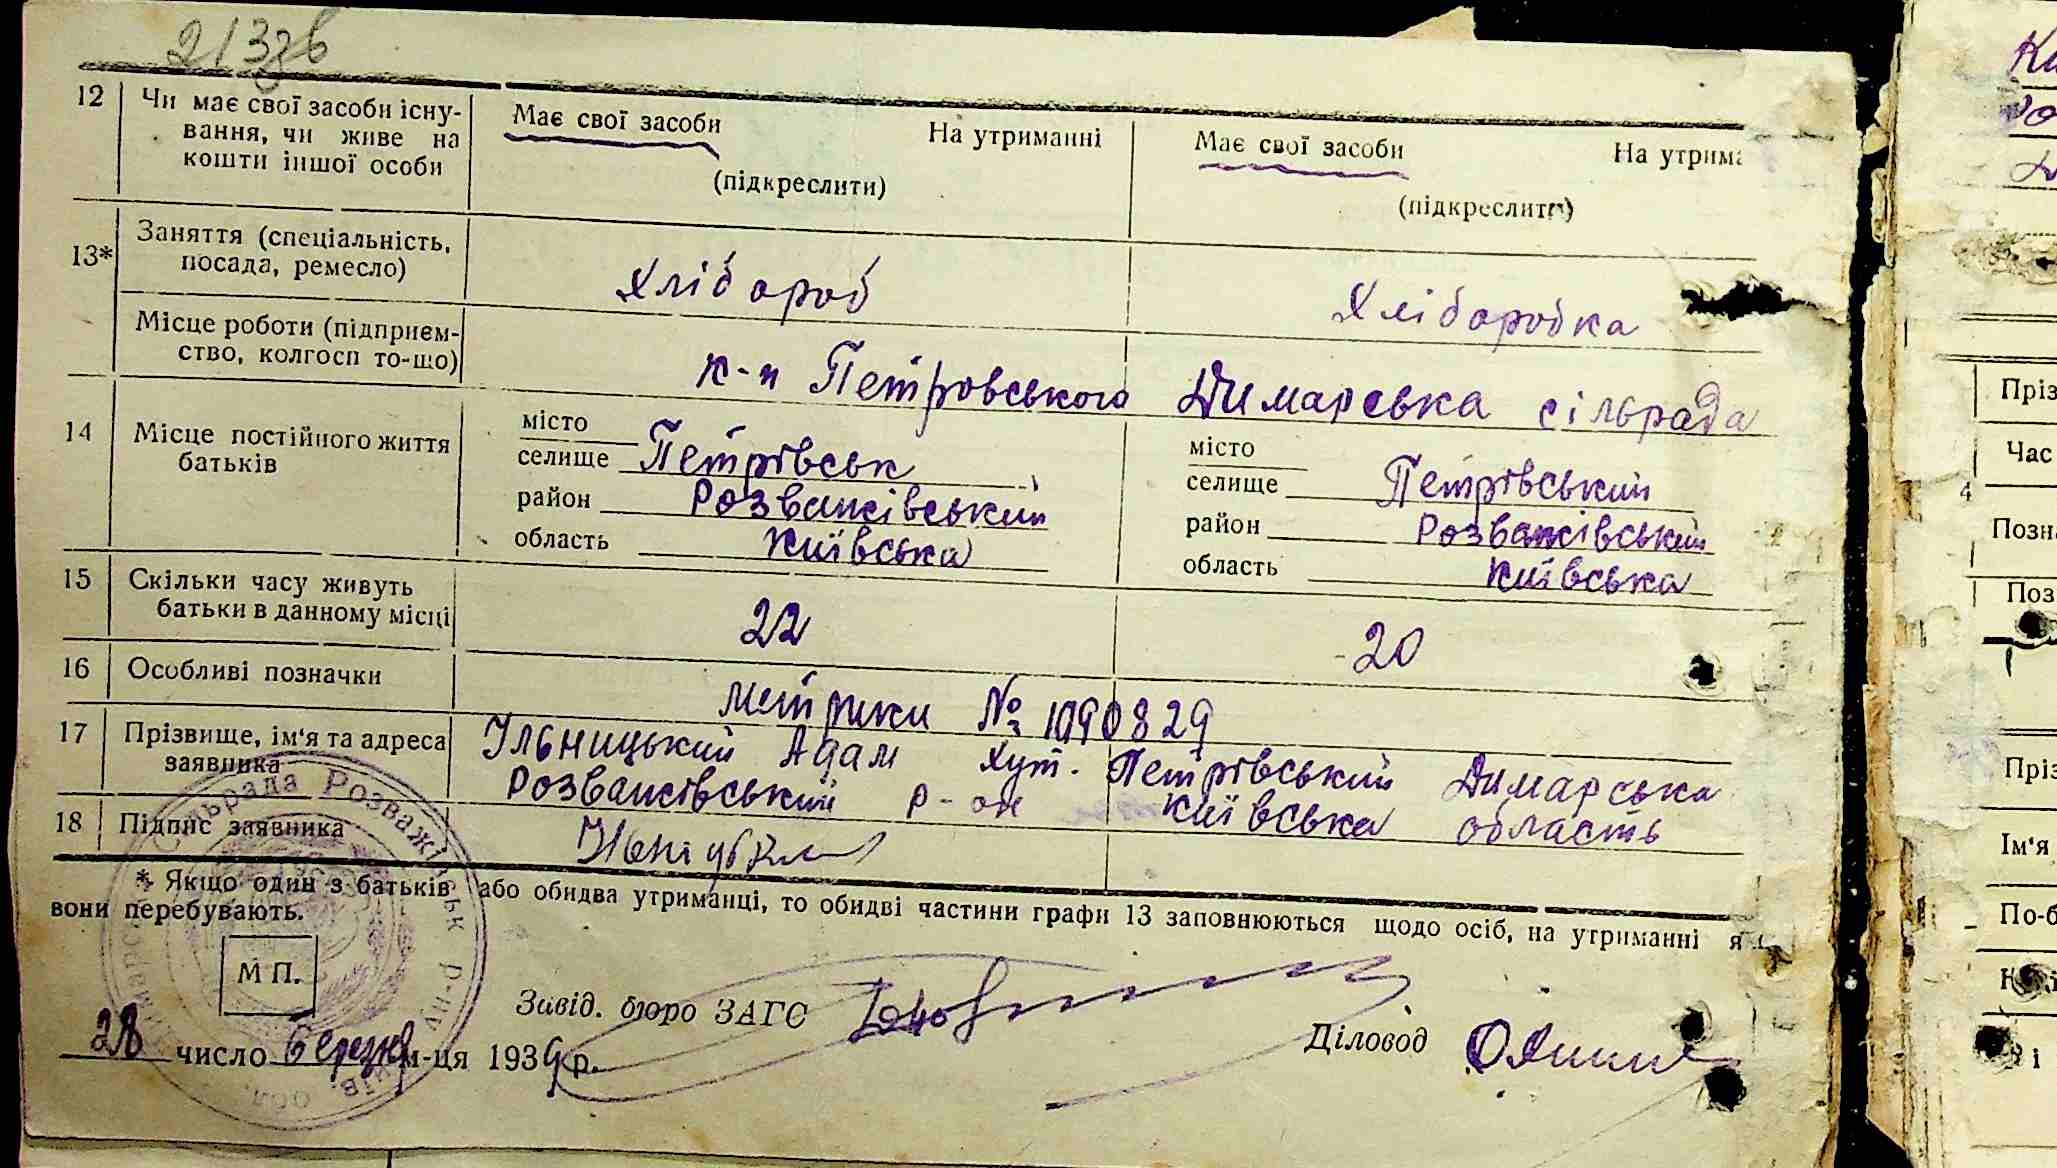 12 Чи має свої засоби існу- Має свої засоби На утриманні Має свої засоби На утрима
вання, чи живе на
кошти іншої особи (підкреслити) (підкреслити)
13* Заняття (спеціальність,
посада, ремесло) Хлібороб Хліборобка
Місце роботи (підприєм-
ство, колгосп то-що) к-п Петровського Димарська сільрада
14 Місце постійного життя
батьків
місто місто
селище Петрівськ селище Петрівський
район Розважівський район Розважівський
область Київська область Київська
15 Скільки часу живуть
батьки в данному місці 22 20
16 Особливі позначки Метрики № 1090829
17 Прізвище, ім'я та адреса Ільницький Адам Хут. Петрівський Димарська
заявника Розважівський р-он Київська область
18 Підпис заявника
* Якщо один з батьків або обидва утриманці, то обидві частини графи 13 заповнюються щодо осіб, на утриманні я
вони перебувають.
М П.
Завід. бюро ЗАГС Діловод
28 число березня м-ця 1939 р.
Сільрада Розважівськ р-ну
Пріз
Час
4
Позн
Поз
Пріз
Ім'я
По-б